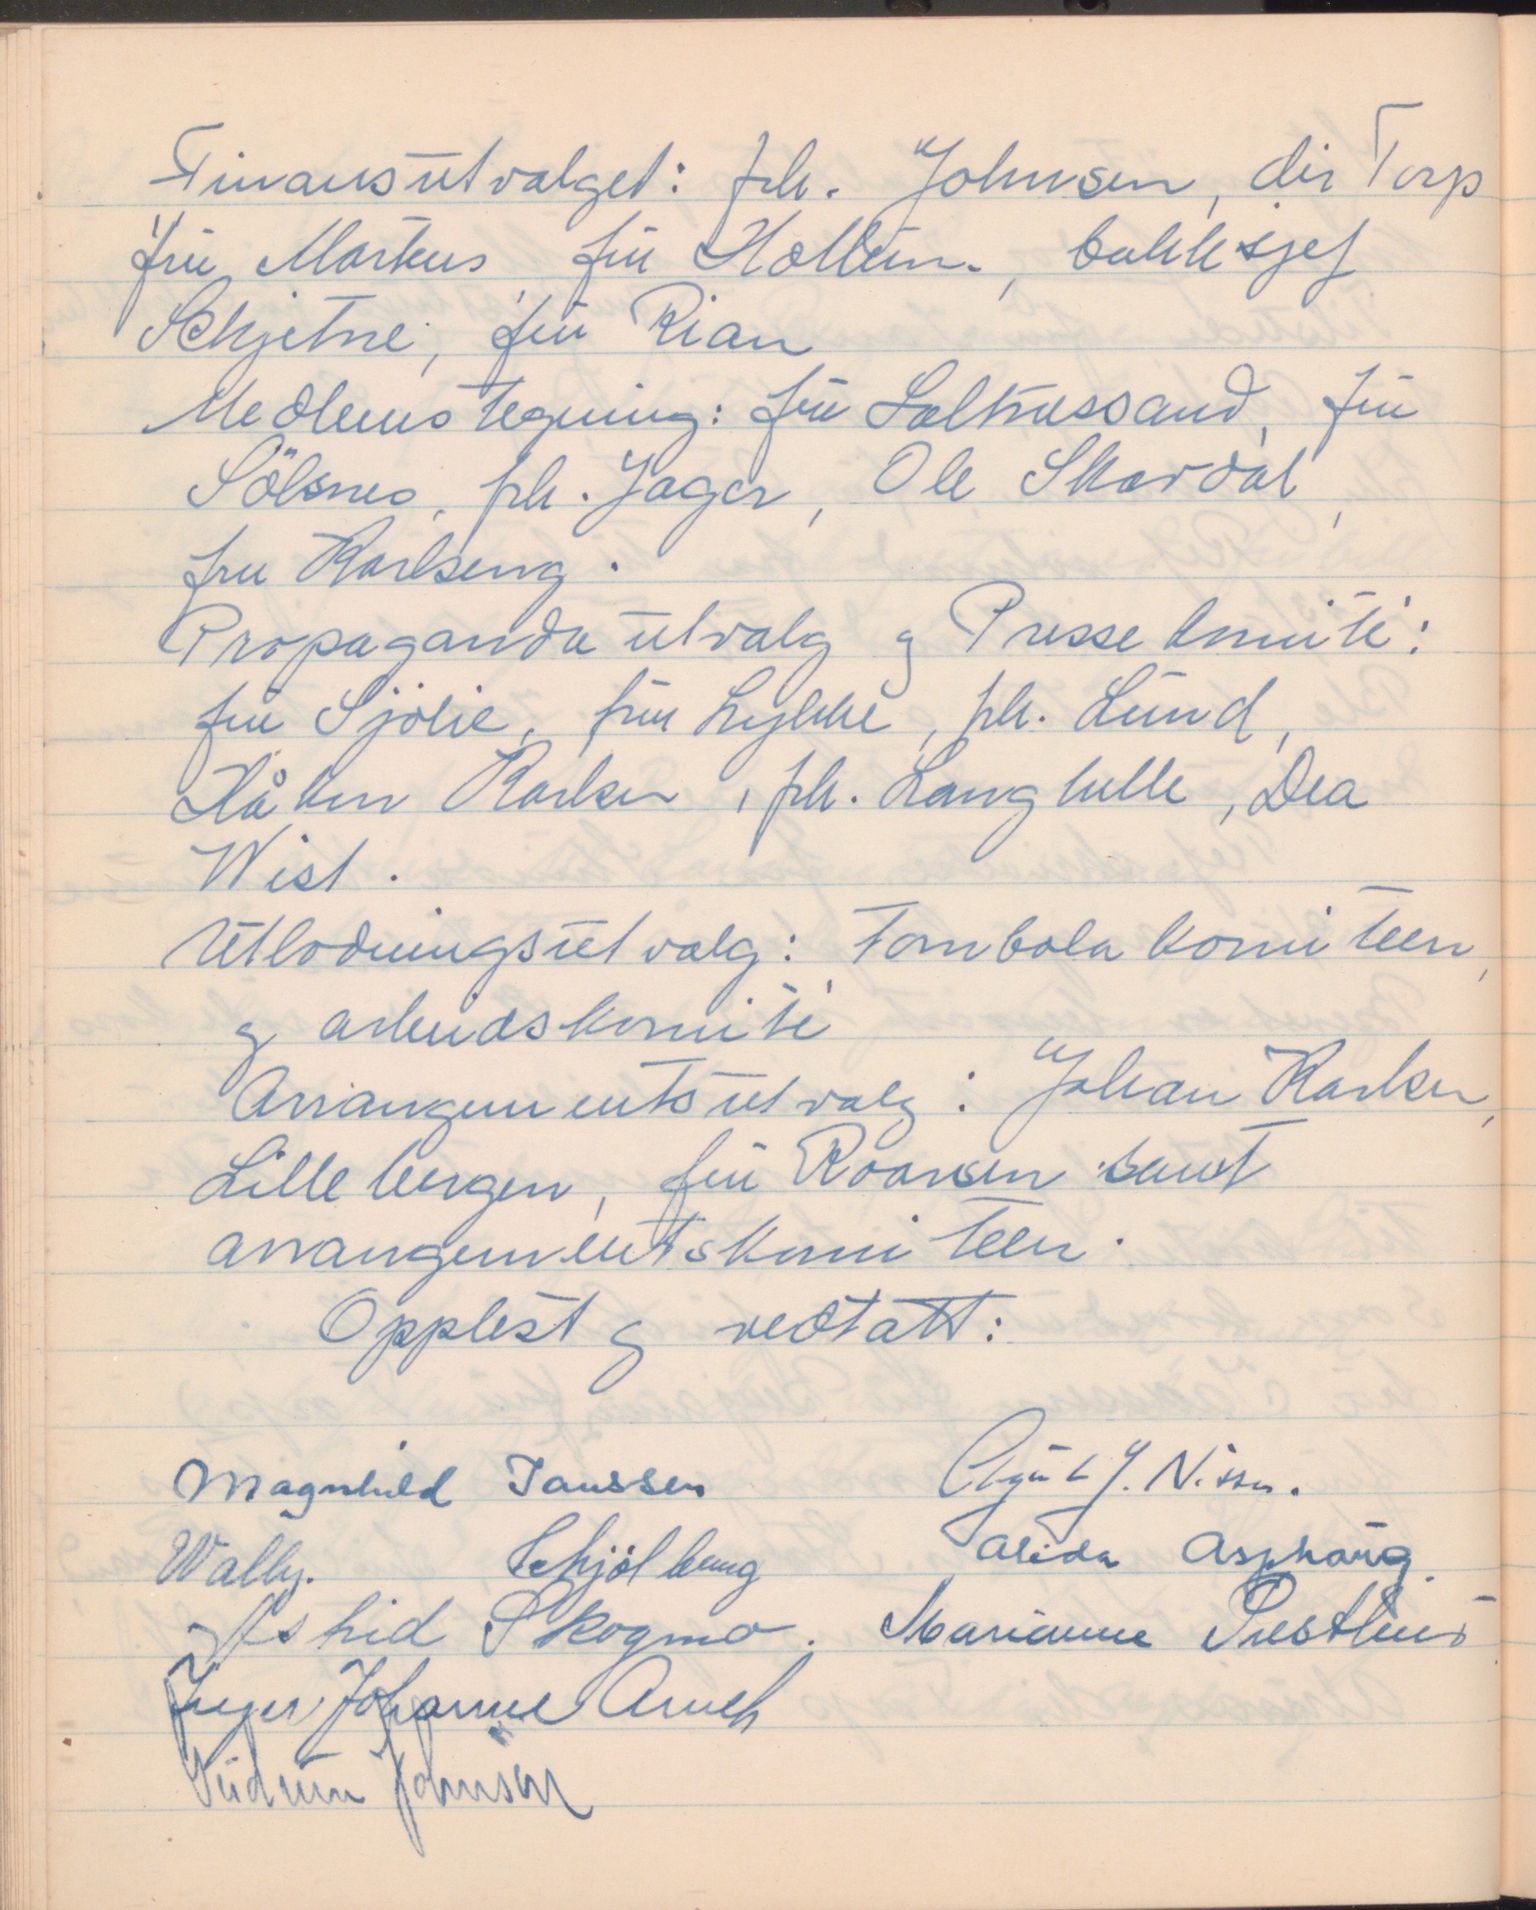 Finansutvalget: frk. Johnsen, dir Torp
fru Markus, fru Hollum., bankksjef
Schjetne, fru Rian
Medlemstegning: fru Saltnessand, fru
Sölsnes, frk. Jager, Ole Skardal,
fru Karlseng.
Propaganda utvalg og Presse komité:
fru Sjölie, fru Lykke, frk. Lund,
Håkon Karlsen, frk. Langhelle, Dea
Wist.
Utlodningsutvalg: Tombola komiteen,
og arbeidskomité
Arrangementsutvalg: Johan Karlsen,
Lillebergen, fru Roansen samt
arrangementskomiteen.
Opplest og vedtatt:
Magnhild Janssen J. Nissen.
Wally. Schjölberg Alida Asphaug.
Astrid Skogmo. Marianne Presthus
Inger Johanne Arneh
Gudrun Johnsen